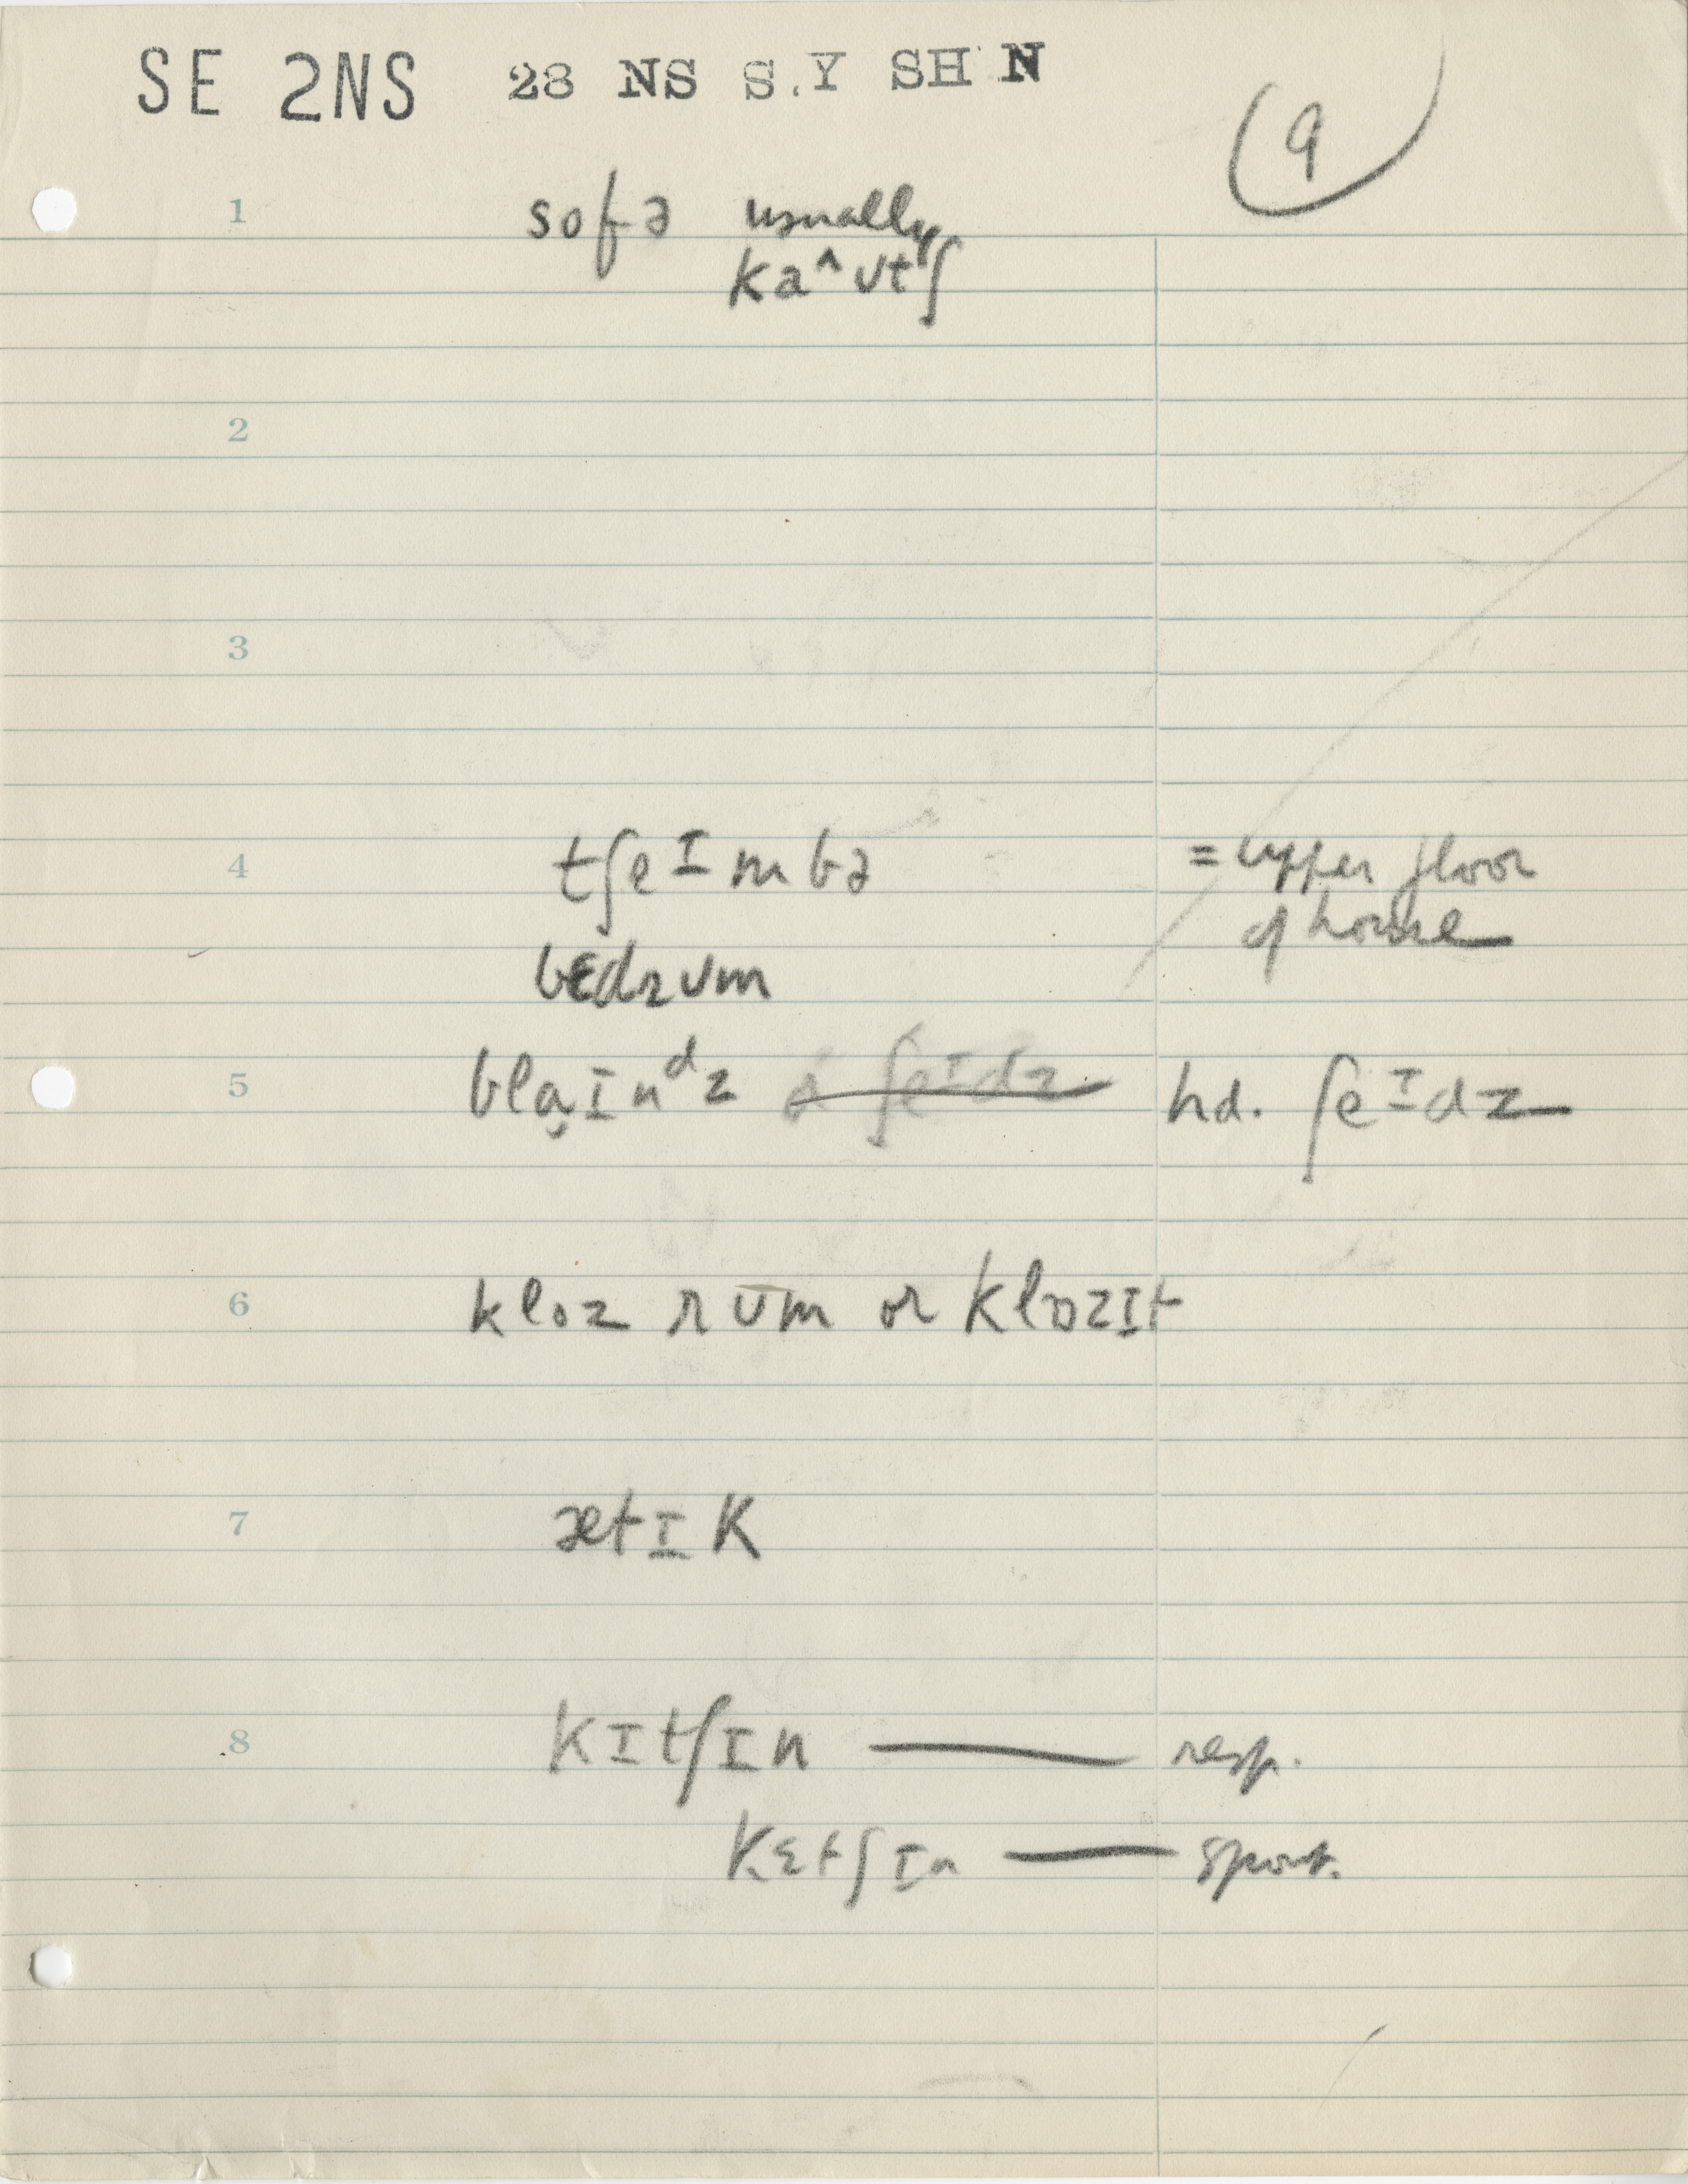 SE 2NS 28 NS S.Y SH N
9
1 sofə usually
ka^ʊtʃ
2
3
4 tʃeɪmbə = upper floor
of house
bɛdrʊm
5 bla̬ɪnᵈz & ʃeɪdz hd. ʃeɪdz
6 kloz rʊm or klozɪt
7 ætɪk
8 kɪtʃɪn — resp.
kɛtʃɪn — spont.